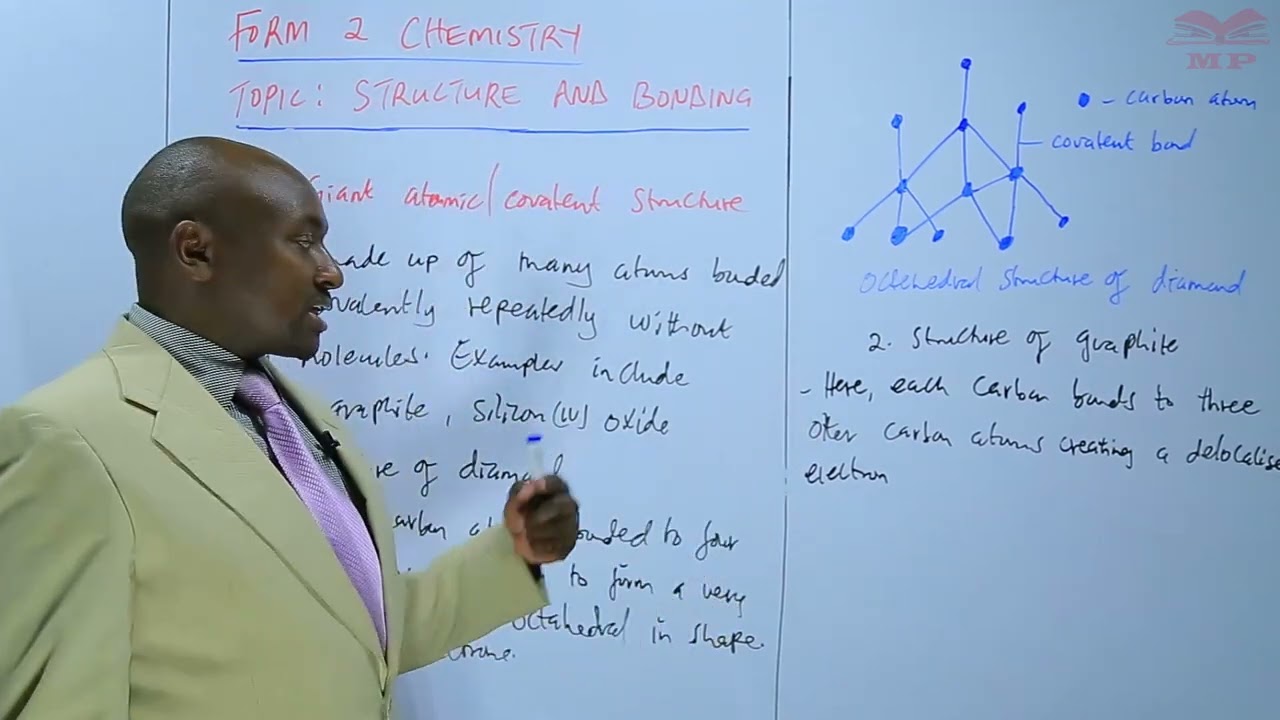 FORM 2 CHEMISTRY
TOPIC: STRUCTURE AND BONDING
Giant atomic/covalent structure
made up of many atoms bonded
valently repeatedly without
molecules. Examples include
graphite, Silicon(IV) oxide
re of diamond
arbon onded to four
to form a very
octahedral in shape.
MP
- Carbon atom
covalent bond
Octahedral structure of diamond
2. Structure of graphite
- Here, each carbon bonds to three
other carbon atoms creating a delocalise
electron